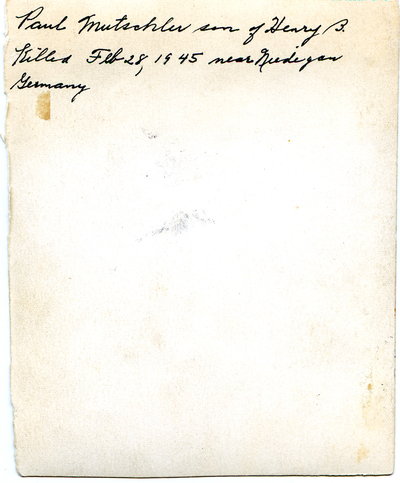 Paul Mutschler son of Henry B.
Killed Feb 28, 1945 near Niedegan
Germany